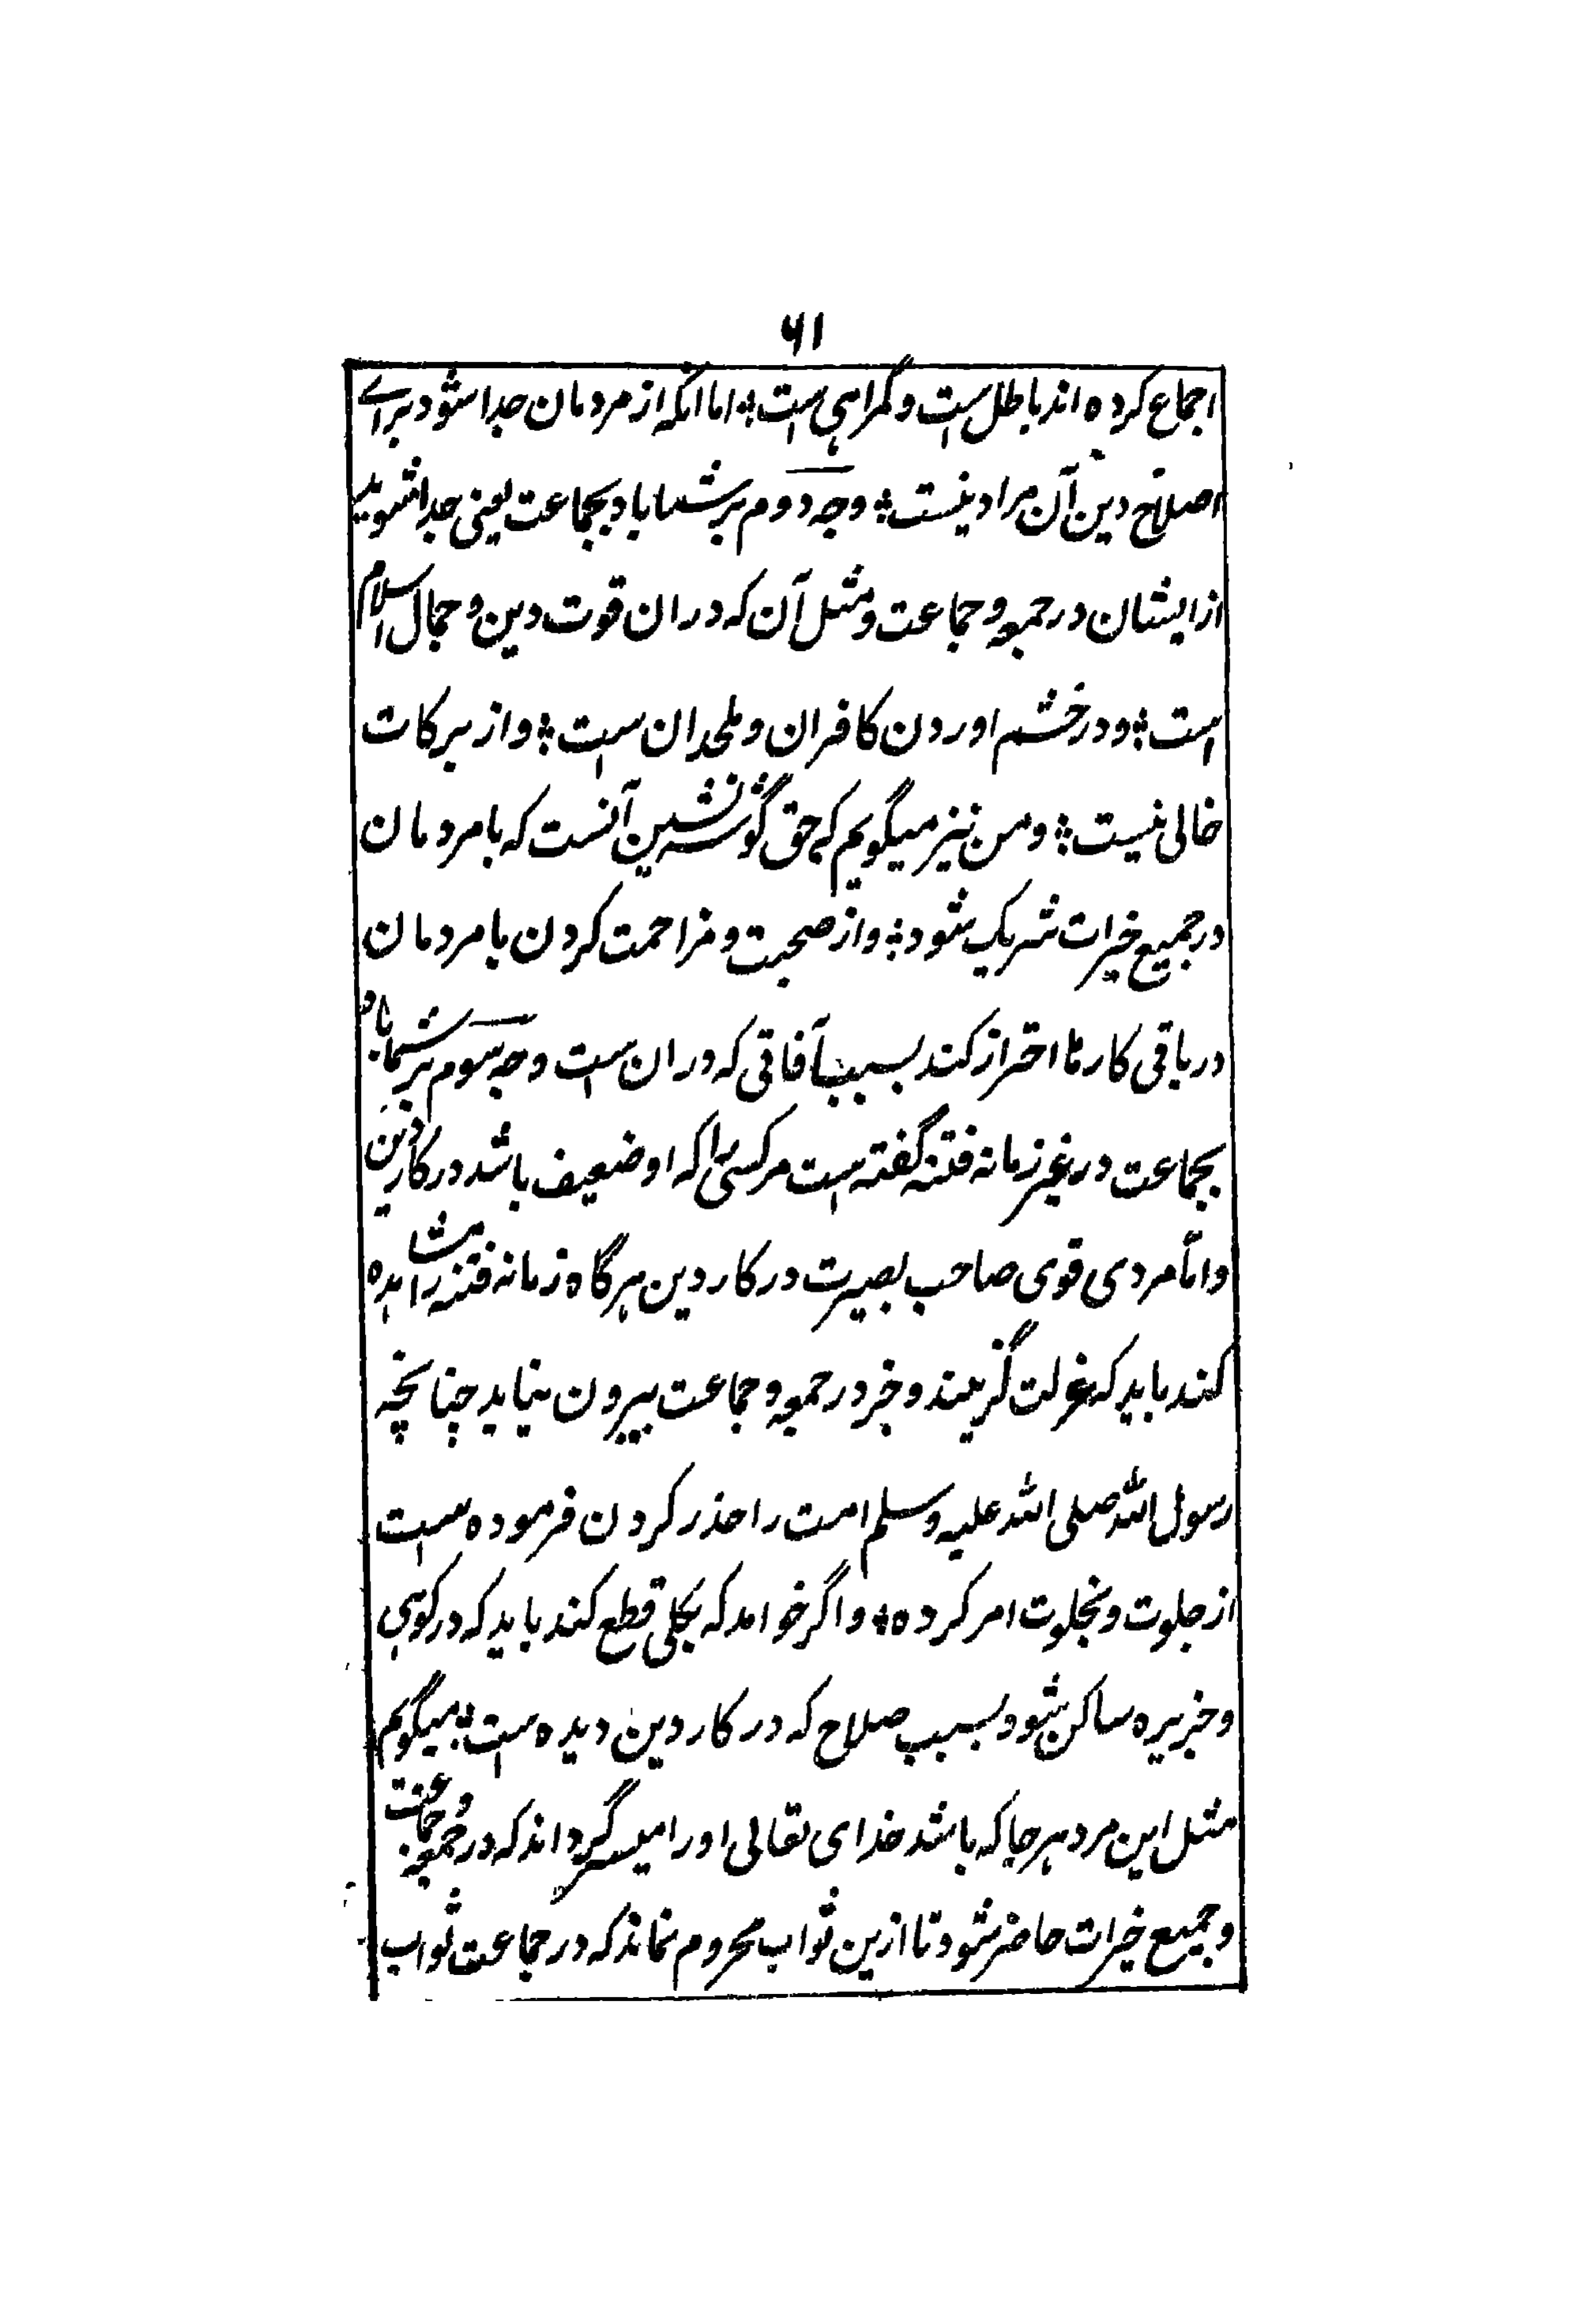 ۶۱
اجماع کرده اند باطل است و گمراهی است؛ اما انکه از مردمان جدا شود براے
اصلاح دین آن مراد نیست؛ وجه دوم بر شما باد بجماعت یعنی جدا مشوید
از ایشان در جمعه و جماعت و مثل آن که دران قوت دین و جمال اسلام
است؛ و در خشم اوردن کافران و ملحدان است؛ و از برکات
خالی نیست؛ و من نیز میگویم که حق گوشه نشین آنست که با مردمان
در جمیع خیرات شریک شود؛ و از صحبت و مزاحمت کردن با مردمان
در باقی کارها احتراز کند بسبب آفاتی که دران است وجه سوم بر شما باد
بجماعت در غیر زمانه فتنه گفته است مر کسی را که او ضعیف باشد در کار دین
و امّا مردی قوی صاحب بصیرت در کار دین هر گاه زمانه فتنه را مشاهده
کند باید که عزلت گزیند و جز در جمعه و جماعت بیرون نیاید چنانچه
رسول الله صلی الله علیه وسلم امت را حذر کردن فرموده است
از جلوت و بخلوت امر کرده؛ و اگر خواهد که بکلی قطع کند باید که در کوهی
و جزیره ساکن شود بسبب صلاح که در کار دین دیده است؛ میگویم
مثل این مرد هر جا که باشد خدای تعالی او را میسر گرداند که در جمعه و جماعت
و جمیع خیرات حاضر شود تا ازین ثواب محروم نماند که در جماعت ثواب